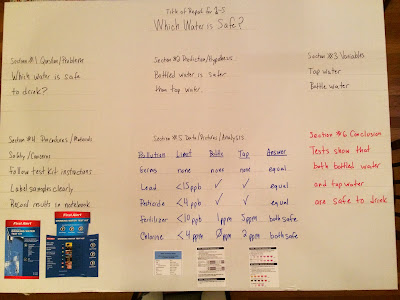 Title of Report for 1-5
Which Water is Safe?
Section #1 Question/Problem
Which water is safe
to drink?
Section #2 Prediction/Hypothesis
Bottled water is safer
than tap water.
Section #3 Variables
Tap water
Bottle water
Section #4 Procedures/Materials
Safety/Concerns
Follow test kit instructions
Label samples clearly
Record results in notebook
First Alert
First Alert
Section #5 Data/Pictures/Analysis
Pollution Limit Bottle Tap Answer
Germs none none none equal
Lead <15 ppb ✓ ✓ equal
Pesticide <4 ppb ✓ ✓ equal
Fertilizer <10 ppb 1ppm 5ppm both safe
Chlorine <4 ppm 0ppm 3 ppm both safe
Section #6 Conclusion
Tests show that
both bottled water
and tap water
are safe to drink